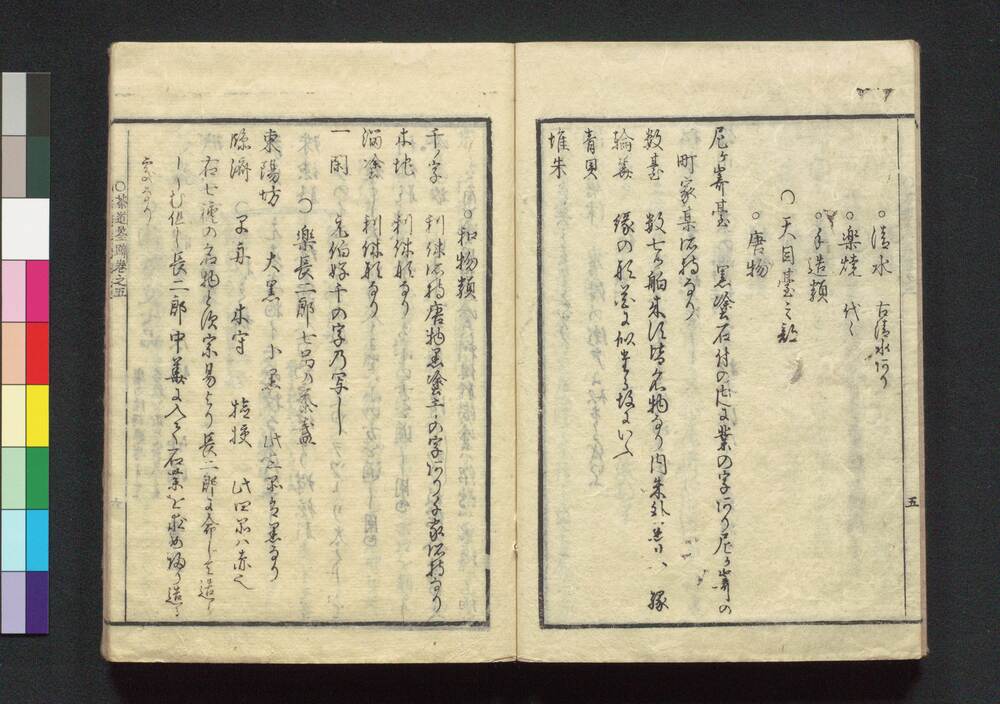 ○清水　古清水アリ
○楽焼　代々
○手造類
○天目臺之部
○唐物
尼ヶ崎臺　黒塗石付の内に葉の字アリ尼ヶ崎の
町家某所持なり
数臺　数七ツ舶来は皆名物なり内朱外黒ハ
輪花　縁の形花に似たる故にいふ
青貝
堆朱
五
○和物類
千ノ字　利休所持唐物黒塗千の字アリ千家所持なり
木地　利休形なり
溜塗　利休形なり
一閑　元伯好千の字乃写し
○楽長二郎七品の茶盌
東陽坊　大黒　小黒　此三品ハ黒なり
臨済　早舟　木守　検校　此四品ハ赤也
右七種の名物は宗易より長二郎に命じて造らしむ
長二郎中華に入て石薬を求め帰り造る
○茶道筌蹄巻之五